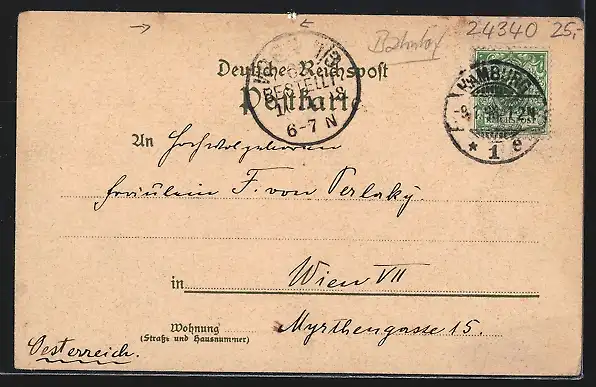 24340 25,-
Bahnhof
Deutsche Reichspost
Postkarte
HAMBURG
* 1 e
BESTELLT
6-7 N
An Hochwolgeboren
Fräulein F. von Perlaky.
in Wien VII
Wohnung
(Straße und Hausnummer)
Myrthengasse 15.
Oesterreich.